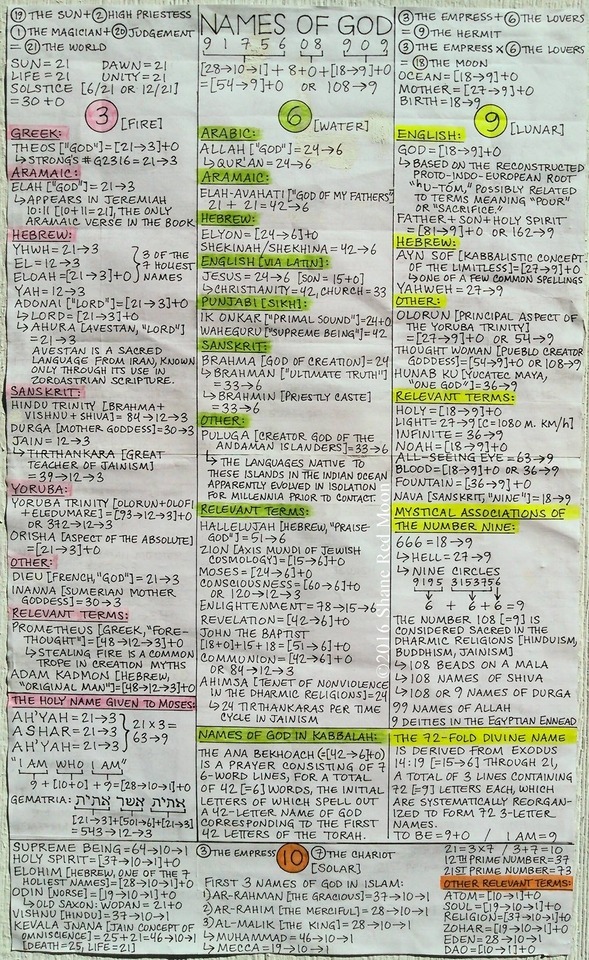 ⑲ THE SUN + ② HIGH PRIESTESS
① THE MAGICIAN + ⑳ JUDGEMENT
= ㉑ THE WORLD
SUN = 21 DAWN = 21
LIFE = 21 UNITY = 21
SOLSTICE [6/21 OR 12/21]
= 30 + 0
3 [FIRE]
GREEK:
THEOS ["GOD"] = [21→3]+0
↳ STRONG'S #G2316 = 21→3
ARAMAIC:
ELAH ["GOD"] = 21→3
↳ APPEARS IN JEREMIAH
10:11 [10+11=21], THE ONLY
ARAMAIC VERSE IN THE BOOK
HEBREW:
YHWH = 21→3
EL = 12→3
ELOAH = [21→3]+0
3 OF THE
7 HOLIEST
NAMES
YAH = 12→3
ADONAI ["LORD"] = [21→3]+0
↳ LORD = [21→3]+0
↳ AHURA [AVESTAN, "LORD"]
= 21→3
AVESTAN IS A SACRED
LANGUAGE FROM IRAN, KNOWN
ONLY THROUGH ITS USE IN
ZOROASTRIAN SCRIPTURE.
SANSKRIT:
HINDU TRINITY [BRAHMA +
VISHNU + SHIVA] = 84→12→3
DURGA [MOTHER GODDESS] = 30→3
JAIN = 12→3
↳ TIRTHANKARA [GREAT
TEACHER OF JAINISM]
= 39→12→3
YORUBA:
YORUBA TRINITY [OLORUN + OLOFI
+ ELEDUMARE] = [93→12→3]+0
OR 372→12→3
ORISHA [ASPECT OF THE ABSOLUTE]
= [21→3]+0
OTHER:
DIEU [FRENCH, "GOD"] = 21→3
INANNA [SUMERIAN MOTHER
GODDESS] = 30→3
RELEVANT TERMS:
PROMETHEUS [GREEK, "FORE-
THOUGHT"] = [48→12→3]+0
↳ STEALING FIRE IS A COMMON
TROPE IN CREATION MYTHS
ADAM KADMON [HEBREW,
"ORIGINAL MAN"] = [48→12→3]+0
THE HOLY NAME GIVEN TO MOSES:
AH'YAH = 21→3
ASHAR = 21→3
AH'YAH = 21→3
21 x 3 =
63→9
"I AM WHO I AM"
9 + [10+0] + 9 = [28→10→1]+0
GEMATRIA: אהיה אשר אהיה
[21→3]+[501→6]+[21→3]
= 543→12→3
NAMES OF GOD
9 1 7 5 6 0 8 9 0 9
[28→10→1] + 8+0 + [18→9]+0
= [54→9]+0 OR 108→9
6 [WATER]
ARABIC:
ALLAH ["GOD"] = 24→6
↳ QUR'AN = 24→6
ARAMAIC:
ELAH-AVAHATI ["GOD OF MY FATHERS"]
21 + 21 = 42→6
HEBREW:
ELYON = [24→6]+0
SHEKINAH/SHEKHINA = 42→6
ENGLISH [VIA LATIN]:
JESUS = 24→6 [SON = 15+0]
↳ CHRISTIANITY = 42, CHURCH = 33
PUNJABI [SIKH]:
IK ONKAR ["PRIMAL SOUND"] = 24+0
WAHEGURU ["SUPREME BEING"] = 42
SANSKRIT:
BRAHMA [GOD OF CREATION] = 24
↳ BRAHMAN ["ULTIMATE TRUTH"]
= 33→6
↳ BRAHMIN [PRIESTLY CASTE]
= 33→6
OTHER:
PULUGA [CREATOR GOD OF THE
ANDAMAN ISLANDERS] = 33→6
↳ THE LANGUAGES NATIVE TO
THESE ISLANDS IN THE INDIAN OCEAN
APPARENTLY EVOLVED IN ISOLATION
FOR MILLENNIA PRIOR TO CONTACT.
RELEVANT TERMS:
HALLELUJAH [HEBREW, "PRAISE
GOD"] = 51→6
ZION [AXIS MUNDI OF JEWISH
COSMOLOGY] = [15→6]+0
MOSES = [24→6]+0
CONSCIOUSNESS = [60→6]+0
OR 120→12→3
ENLIGHTENMENT = 78→15→6
REVELATION = [42→6]+0
JOHN THE BAPTIST
[18+0]+15+18 = [51→6]+0
COMMUNION = [42→6]+0
OR 84→12→3
AHIMSA [TENET OF NONVIOLENCE
IN THE DHARMIC RELIGIONS] = 24
↳ 24 TIRTHANKARAS PER TIME
CYCLE IN JAINISM
NAMES OF GOD IN KABBALAH:
THE ANA BEKHOACH (=[42→6]+0)
IS A PRAYER CONSISTING OF 7
6-WORD LINES, FOR A TOTAL
OF 42 [=6] WORDS, THE INITIAL
LETTERS OF WHICH SPELL OUT
A 42-LETTER NAME OF GOD
CORRESPONDING TO THE FIRST
42 LETTERS OF THE TORAH.
③ THE EMPRESS + ⑥ THE LOVERS
= ⑨ THE HERMIT
③ THE EMPRESS x ⑥ THE LOVERS
= ⑱ THE MOON
OCEAN = [18→9]+0
MOTHER = [27→9]+0
BIRTH = 18→9
9 [LUNAR]
ENGLISH:
GOD = [18→9]+0
↳ BASED ON THE RECONSTRUCTED
PROTO-INDO-EUROPEAN ROOT
"ǵhu-tóm," POSSIBLY RELATED
TO TERMS MEANING "POUR"
OR "SACRIFICE."
FATHER + SON + HOLY SPIRIT
= [81→9]+0 OR 162→9
HEBREW:
AYN SOF [KABBALISTIC CONCEPT
OF THE LIMITLESS] = [27→9]+0
↳ ONE OF A FEW COMMON SPELLINGS
YAHWEH = 27→9
OTHER:
OLORUN [PRINCIPAL ASPECT OF
THE YORUBA TRINITY]
= [27→9]+0 OR 54→9
THOUGHT WOMAN [PUEBLO CREATOR
GODDESS] = [54→9]+0 OR 108→9
HUNAB KU [YUCATEC MAYA,
"ONE GOD"] = 36→9
RELEVANT TERMS:
HOLY = [18→9]+0
LIGHT = 27→9 [C = 1080 M. KM/H]
INFINITE = 36→9
NOAH = [18→9]+0
ALL-SEEING EYE = 63→9
BLOOD = [18→9]+0 OR 36→9
FOUNTAIN = [36→9]+0
NAVA [SANSKRIT, "NINE"] = 18→9
MYSTICAL ASSOCIATIONS OF
THE NUMBER NINE:
666 = 18→9
↳ HELL = 27→9
↳ NINE CIRCLES
9195 3153756
6 + 6 + 6 = 9
THE NUMBER 108 [=9] IS
CONSIDERED SACRED IN THE
DHARMIC RELIGIONS [HINDUISM,
BUDDHISM, JAINISM]
↳ 108 BEADS ON A MALA
↳ 108 NAMES OF SHIVA
↳ 108 OR 9 NAMES OF DURGA
99 NAMES OF ALLAH
9 DEITIES IN THE EGYPTIAN ENNEAD
THE 72-FOLD DIVINE NAME
IS DERIVED FROM EXODUS
14:19 [=15→6] THROUGH 21,
A TOTAL OF 3 LINES CONTAINING
72 [=9] LETTERS EACH, WHICH
ARE SYSTEMATICALLY REORGAN-
IZED TO FORM 72 3-LETTER
NAMES.
TO BE = 9+0 / I AM = 9
©2016 Shane Red Moon
SUPREME BEING = 64→10→1
HOLY SPIRIT = [37→10→1]+0
ELOHIM [HEBREW, ONE OF THE 7
HOLIEST NAMES] = [28→10→1]+0
ODIN [NORSE] = [19→10→1]+0
↳ OLD SAXON: WODAN = 21+0
VISHNU [HINDU] = 37→10→1
KEVALA JNANA [JAIN CONCEPT OF
OMNISCIENCE] = 25+21 = 46→10→1
[DEATH = 25, LIFE = 21]
③ THE EMPRESS 10 ⑦ THE CHARIOT
[SOLAR]
FIRST 3 NAMES OF GOD IN ISLAM:
1) AR-RAHMAN [THE GRACIOUS] = 37→10→1
2) AR-RAHIM [THE MERCIFUL] = 28→10→1
3) AL-MALIK [THE KING] = 28→10→1
↳ MUHAMMAD = 46→10→1
↳ MECCA = 19→10→1
21 = 3x7 / 3+7 = 10
12TH PRIME NUMBER = 37
21ST PRIME NUMBER = 73
OTHER RELEVANT TERMS:
ATOM = [10→1]+0
SOUL = [19→10→1]+0
RELIGION = [37→10→1]+0
ZOHAR = [19→10→1]+0
EDEN = 28→10→1
DAO = [10→1]+0